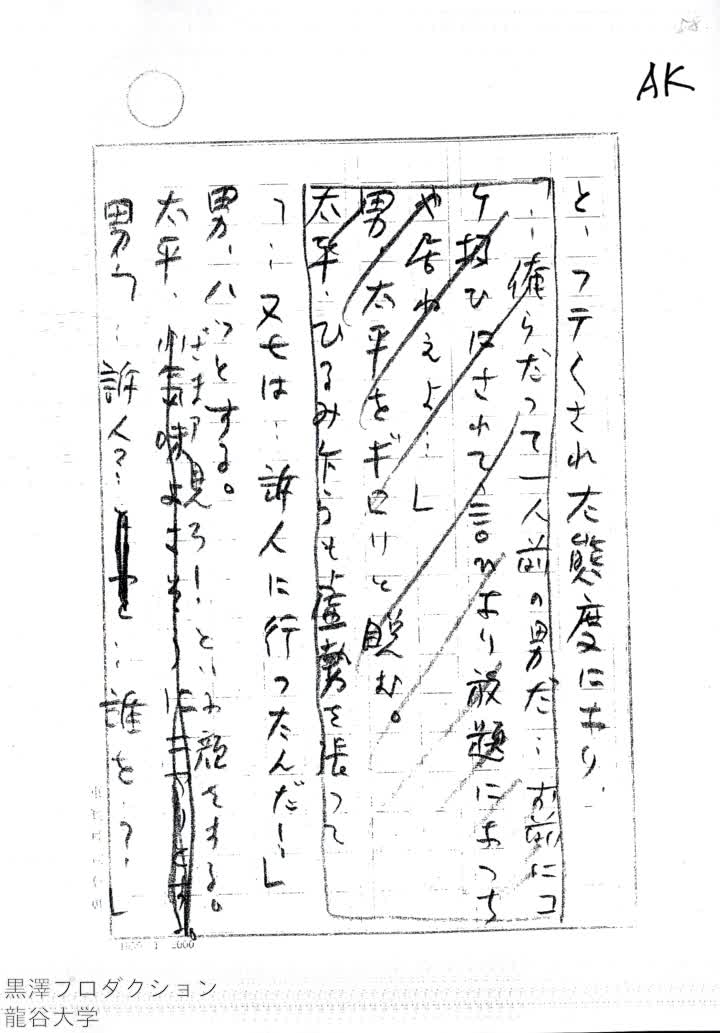 58
AK
と、フテくされた態度になり、
「‥俺らだって一人前の男だ‥お前にコ
ケ扱ひにされて言ひなり放題になっち
や居ねえよ‥」
男、太平をギロリと睨む。
太平、ひるみ乍らも虚勢を張って
「‥又七は‥訴人に行ったんだ！‥」
男、ハッとする。
ざまァ見ろ！といふ顔をする。
太平、小気味よささうにニヤリとする。
男「‥訴人？‥‥誰を？‥」
黒澤プロダクション
龍谷大学